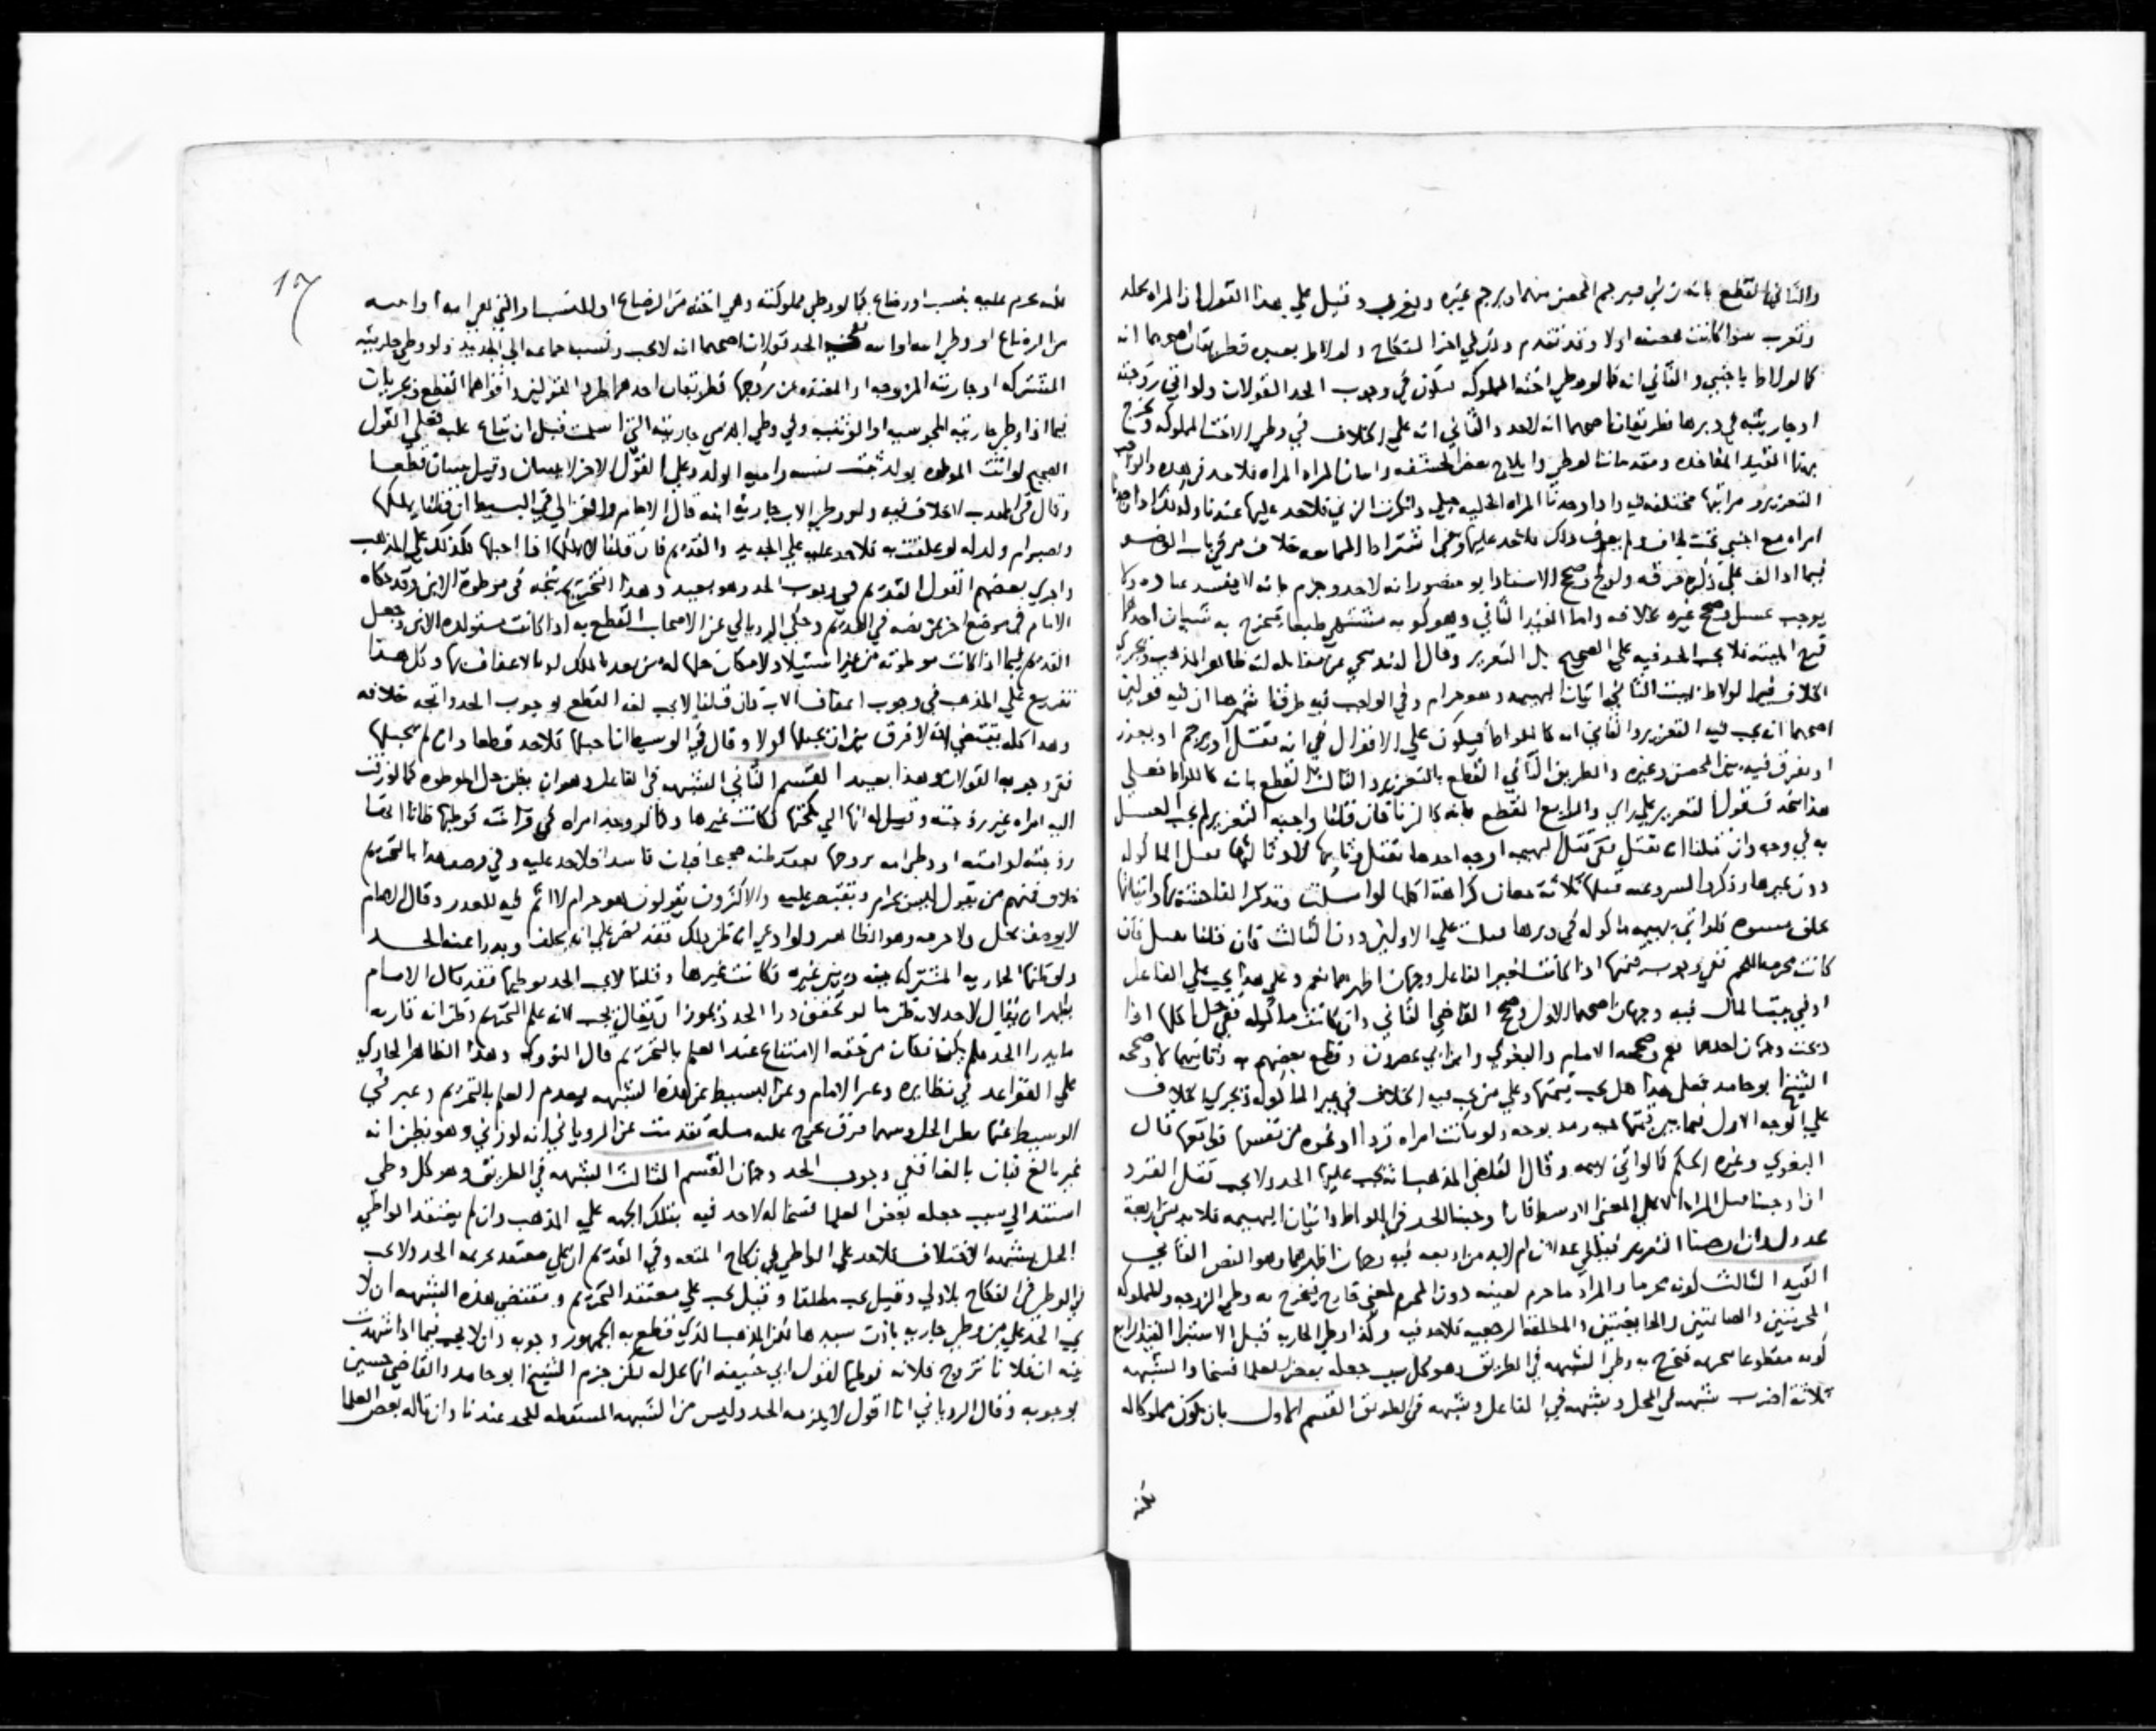 والثاني القطع بانه زني فيرجم المحصن منهما ويرجم غيره ويغرب وقيل علي هذا القول ان المراه تجلد
وتغرب سوا كانت محصنه اولا وقد تقدم وذكر في اخر النكاح ولو لاط بعبده فطريقان اصحهما انه
كما لو لاط باجنبي والثاني انه كما لو وطي اخته المملوكه فيكون في وجوب الحد القولان ولو اتي زوجته
او جاريته في دبرها فطريقان اصحهما انه لا حد والثاني انه علي الخلاف في وطي الاخت المملوكه وخرج
بهذا القيد المفاخذه ومقدمات الوطي وايلاج بعض الحشفه واتيان المراه المراه فلا حد في هذه والواجب
التعزير و مراتبها مختلفه واذا وجدنا المراه الخليه حبلي وانكرت الزني فلا حد عليها عندنا وكذلك اذا وجدنا
امراه مع اجنبي تحت لحاف ولم يعرف ذلك فلا حد عليهما وفي اشتراط خلاف مر في باب الوضو
فيما اذا لف علي ذكره خرقه واولج وصحح الاستاذ ابو منصور انه لا حد وجزم بانه لا يفسد عباده ولا
يوجب غسل وصحح غيره خلافه واما القيد الثاني وهو كونه مشتهي طبعا فيخرج به شيان احدهما
فرج الميته فلا يجب الحد فيه علي الصحيح بل التعزير وقال
الخلاف فيما لو لاط بميت الثاني اتيان البهيمه وهو حرام وفي الواجب فيه طرق اشهرها ان فيه قولين
اصحهما انه يجب فيه التعزير والثاني انه كاللواط فيكون علي الاقوال في انه يقتل او يرجم او يعزر
او يفرق فيه بين المحصن وغيره والطريق الثاني القطع بالتعزير والثالث القطع بانه كاللواط فعلي
هذا التعزير علي راي والرابع القطع بانه كالزنا فان قلنا واجبه التعزير لم يجب الغسل
به في وجه وان قلنا انه يقتل ففي قتل البهيمه اوجه احدها تقتل وثانيها لا وثالثها تقتل الماكوله
دون غيرها وذكروا ثلاثة معان كراهة اكلها
فلو اتي بهيمه ماكوله في دبرها علي الاولين دون الثالث فان قلنا تقتل فان
كانت محرمة اللحم ففي وجوب قيمتها اذا كانت لغير الفاعل وجهان اظهرهما نعم وعلي هذا يجب علي الفاعل
او في بيت المال فيه وجهان اصحهما الاول وصحح القاضي الثاني وان كانت ماكوله ففي حل اكلها اذا
ذبحت وجهان احدهما نعم وصححه الامام والبغوي وابن ابي عصرون وقطع بعضهم به وثانيهما لا وصححه
الشيخ ابو حامد فعلي هذا هل تجب قيمتها وعلي من تجب فيه الخلاف في غير الماكوله ويجري الخلاف
علي الوجه الاول فيما بين قيمتها ولو مكنت امراه قردا او نحوه من نفسها فواقعها قال
البغوي وغيره الحكم كما لو اتي بهيمه وقال القاضي المذهب انه يجب عليها الحد ولا يجب قتل القرد
اذا وجبنا الا علي المعني الاوسط فان اوجبنا الحد في اللواط واتيان البهيمه فلا بد من اربعة
عدول وان اوجبنا التعزير فيقبل عدلان ام لا بد من اربعه فيه وجهان اظهرهما وهو النص الثاني
القيد الثالث كونه محرما والمراد ما حرم لعينه دون المحرم لمعني فيخرج به وطي الزوجه والمملوكه
المحرمتين والصايمتين والحايضتين والمطلقه الرجعيه فلا حد فيه وكذا وطي الجاريه قبل الاستبرا القيد الرابع
كونه مقطوعا بتحريمه فيخرج به وطي الشبهه في الطريق وهو كل سبب جعله بعض العلما قسما والشبهه
ثلاثة اضرب شبهه في المحل وشبهه في الفاعل وشبهه في الطريق القسم الاول بان تكون مملوكة له
17
لكنه تحرم عليه بنسب او رضاع كما لو وطي مملوكته وهي اخته من الرضاع او النسب
من الرضاع او وطي امه ففي الحد قولان اصحهما انه لا يجب ونسب جماعه الي الجديد ولو وطي جاريته
المشتركه او جاريته المزوجه او المعتده عن زوجها فطريقان احدهما طرد القولين واقواهما القطع ويجريان
فيما اذا وطي جاريته المجوسيه او الوثنيه وفي وطي الذمي جاريته التي اسلمت قبل ان تباع عليه فعلي القول
الصحيح لو اتت الموطوه بولد ثبت نسبه وامية الولد وعلي القول الاخر لا يثبتان وقيل يثبتان قطعا
وقال في المهذب لا خلاف فيه ولو وطي الاب جارية ابنه قال الامام والغزالي في البسيط ان قلنا يملكها
وتصير ام ولد له لو علقت به فلا حد عليه علي الجديد والقديم فان قلنا لا يملكها اذا احبلها فكذلك علي المذهب
واجري بعضهم القول القديم في وجوب الحد وهو بعيد وهذا التخريج يتجه في موطوة الابن وقد حكاه
الامام في موضع اخر عن نصه في القديم وحكي الروياني عن الاصحاب القطع به اذا كانت مستولده الابن وجعل
القديم فيما اذا كانت موطوته من غير استيلاد لامكان حلها له من بعد بالملك لو وكل هذا
تفريع علي المذهب في وجوب اعفاف الاب فان قلنا لا يجب لغا القطع لوجوب الحد واتجه خلافه
وهذا كله يقتضي انه لا فرق بين ان يحبلها او لا وقال في الوسيط اذا حبلها فلا حد قطعا وان لم يحبلها
ففي وجوبه القولان وهذا بعيد القسم الثاني الشبهه في الفاعل وهو ان يظن حل الموطوه كما لو زفت
اليه امراه غير زوجته وقيل له انها التي نكحتها فكانت غيرها وكما لو وجد امراه في فراشه فوطيها ظانا انها
زوجته او امته او وطي امراه تزوجها بعقد ظنه صحيحا فبان فاسدا فلا حد عليه وفي وصف هذا بالتحريم
خلاف فمنهم من يقول ليس بحرام وتقتصر عليه والاكثرون يقولون هو حرام لا اثم فيه للعذر وقال الامام
لا يوصف بحل ولا حرمه وهو الظاهر ولو ادعي انه ظن ذلك فقد نص علي انه يحلف ويدرا عنه الحد
ولو ظنها الجاريه المشتركه بينه وبين غيره فكانت غيرها وقلنا لا يجب الحد بوطيها فقد قال الامام
يظهر ان يقال لا حد لانه ظن ما لو تحقق درا الحد ويجوز ان يقال يجب لانه علم التحريم وظن انه قارنه
ما يدرا الحد فلم يكن فكان من حقه الامتناع عند العلم بالتحريم قال النووي وهذا الظاهر الجاري
علي القواعد في نظايره وعبر الامام وعن البسيط عن هذه الشبهه بعدم العلم بالتحريم وعبر في
الوسيط عنها بظن الحل وبينهما فرق تخرج عليه مسلة تقدمت عن الروياني انه لو زني وهو يظن انه
غير بالغ فبان بالغا ففي وجوب الحد وجهان القسم الثالث الشبهه في الطريق وهو كل وطي
استند الي سبب جعله بعض العلما قسما له لا حد فيه بتلك الجهه علي المذهب وان لم يعتقد الواطي
الحل بشبهه الاختلاف فلا حد علي الواطي في نكاح المتعه وفي القديم ان علي معتقد تحريمه الحد ولا يجب
في الوطي في النكاح بلا ولي وقيل يجب مطلقا وقيل يجب علي معتقد التحريم ومقتضي هذه الشبهه ان لا
يجب الحد علي من وطي جاريه باذن سيدها لكن المذهب الذي قطع به الجمهور وجوبه وان لا يجب فيما اذا شهدت
بينه ان فلانا تزوج فلانه فوطيها لقول ابي حنيفه انها تحل له لكن جزم الشيخ ابو حامد والقاضي حسين
بوجوبه وقال الروياني انا اقول لا يلزمه الحد وليس من الشبهه المسقطه للحد عندنا وان قاله بعض العلما